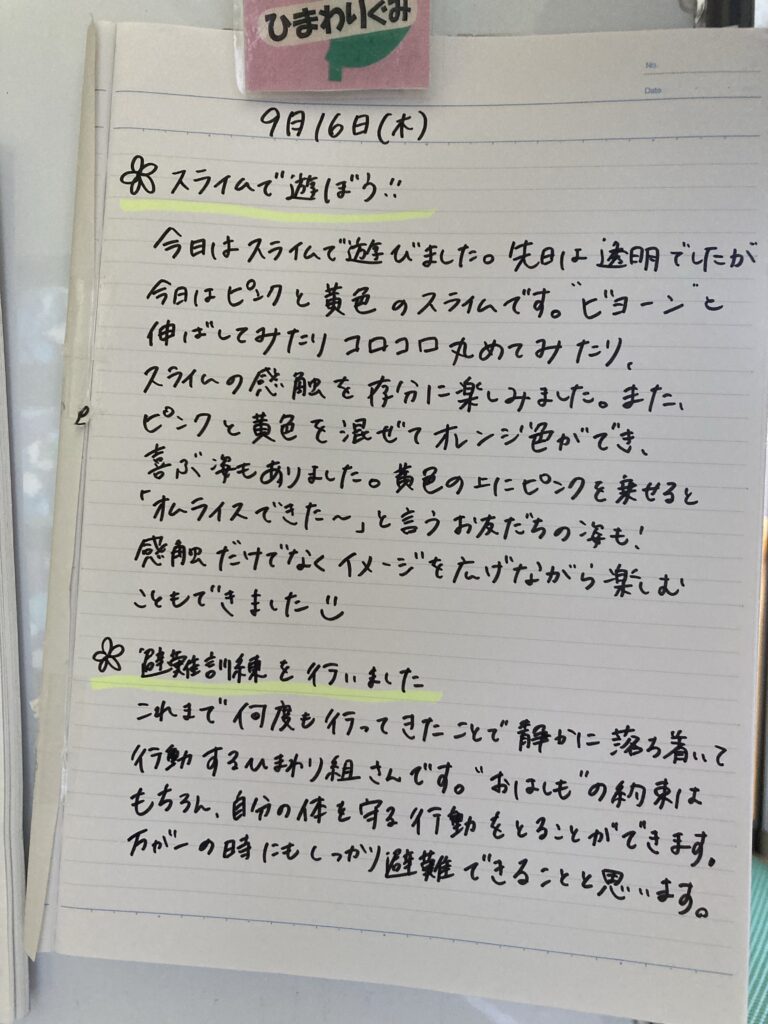 ひまわりぐみ
No.
Date
9月16日(木)
スライムで遊ぼう!!
今日はスライムで遊びました。先日は透明でしたが
今日はピンクと黄色のスライムです。"ビヨーン"と
伸ばしてみたりコロコロ丸めてみたり、
スライムの感触を存分に楽しみました。また、
ピンクと黄色を混ぜてオレンジ色ができ、
喜ぶ姿もありました。黄色の上にピンクを乗せると
「オムライスできた～」と言うお友だちの姿も!
感触だけでなくイメージを広げながら楽しむ
こともできました
避難訓練を行いました
これまで何度も行ってきたことで静かに落ち着いて
行動するひまわり組さんです。"おはしも"の約束は
もちろん、自分の体を守る行動をとることができます。
万が一の時にもしっかり避難できることと思います。